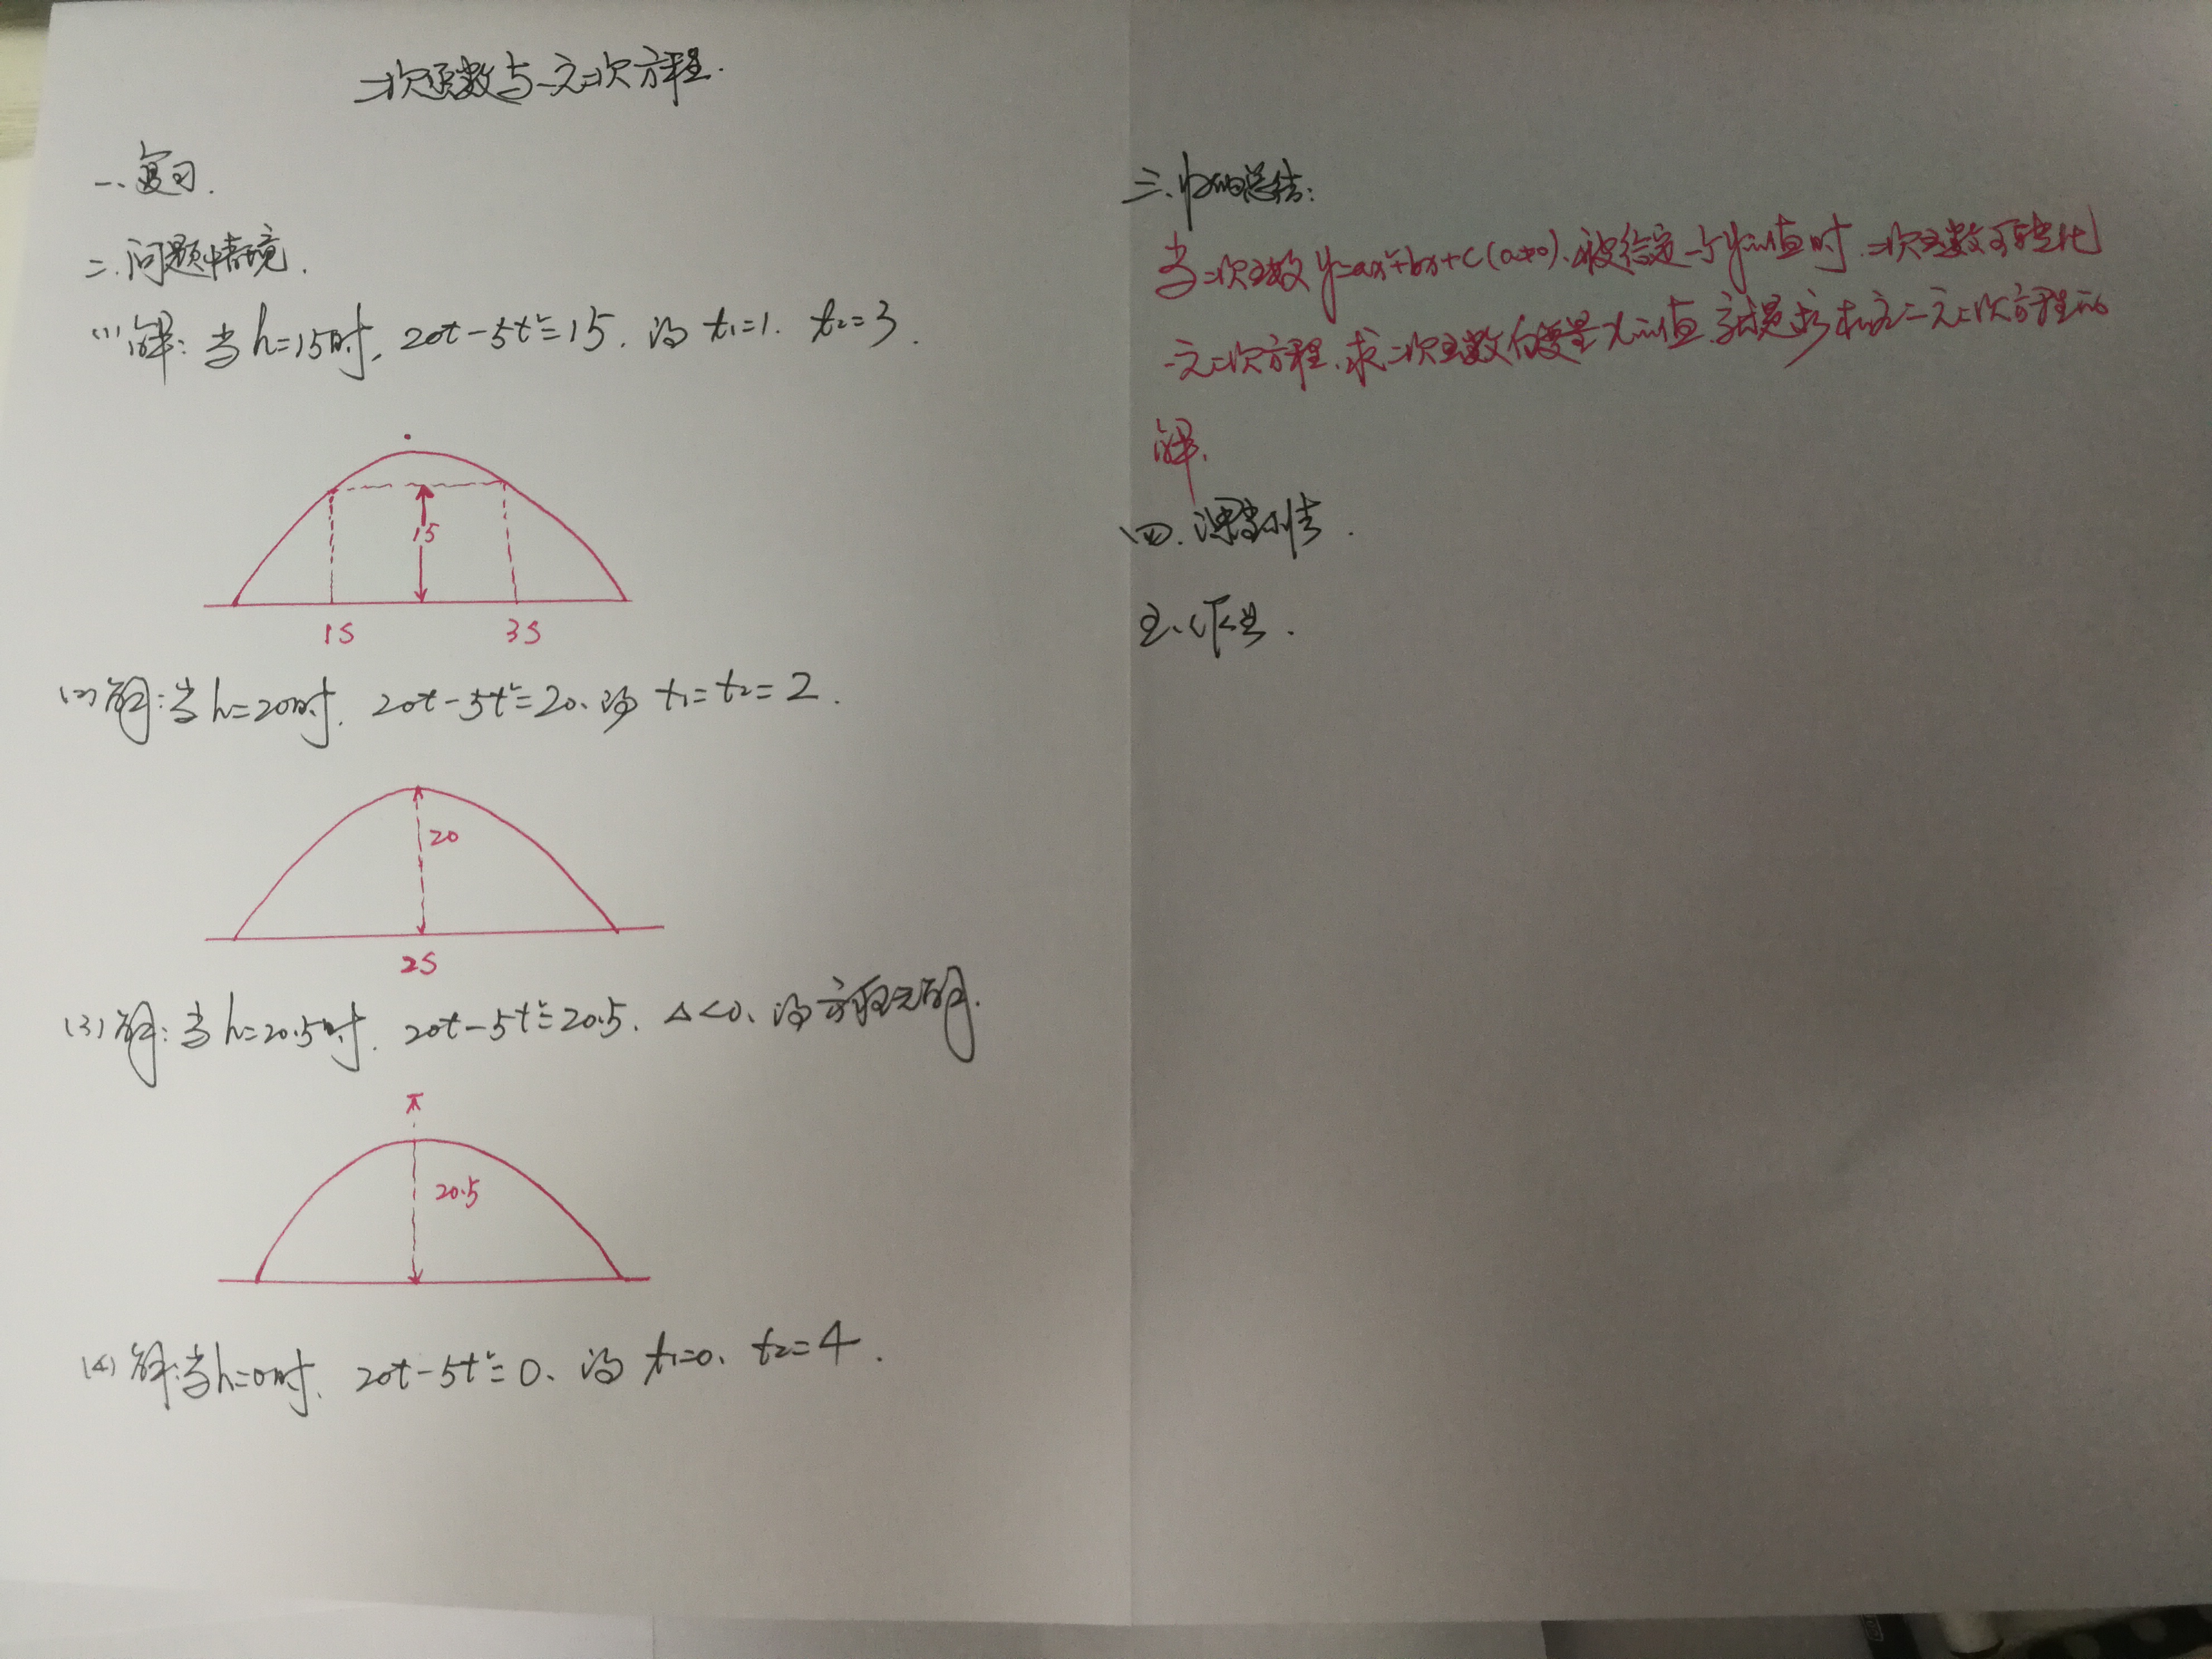 二次函数与一元二次方程.
一、复习.
二.问题情境.
(1)解:当h=15时, 20t-5t²=15. 得 t₁=1. t₂=3.
15
1s 3s
(2)解:当h=20时, 20t-5t²=20. 得 t₁=t₂=2.
20
2s
(3)解:当h=20.5时, 20t-5t²=20.5. △<0. 得方程无解.
20.5
(4)解:当h=0时, 20t-5t²=0. 得 t₁=0. t₂=4.
三.归纳总结:
当二次函数y=ax²+bx+c(a≠0).被给定一个y的值时.二次函数可转化
一元二次方程.求二次函数自变量x的值.就是求相应一元二次方程的
解.
四.课堂小结.
五.作业.